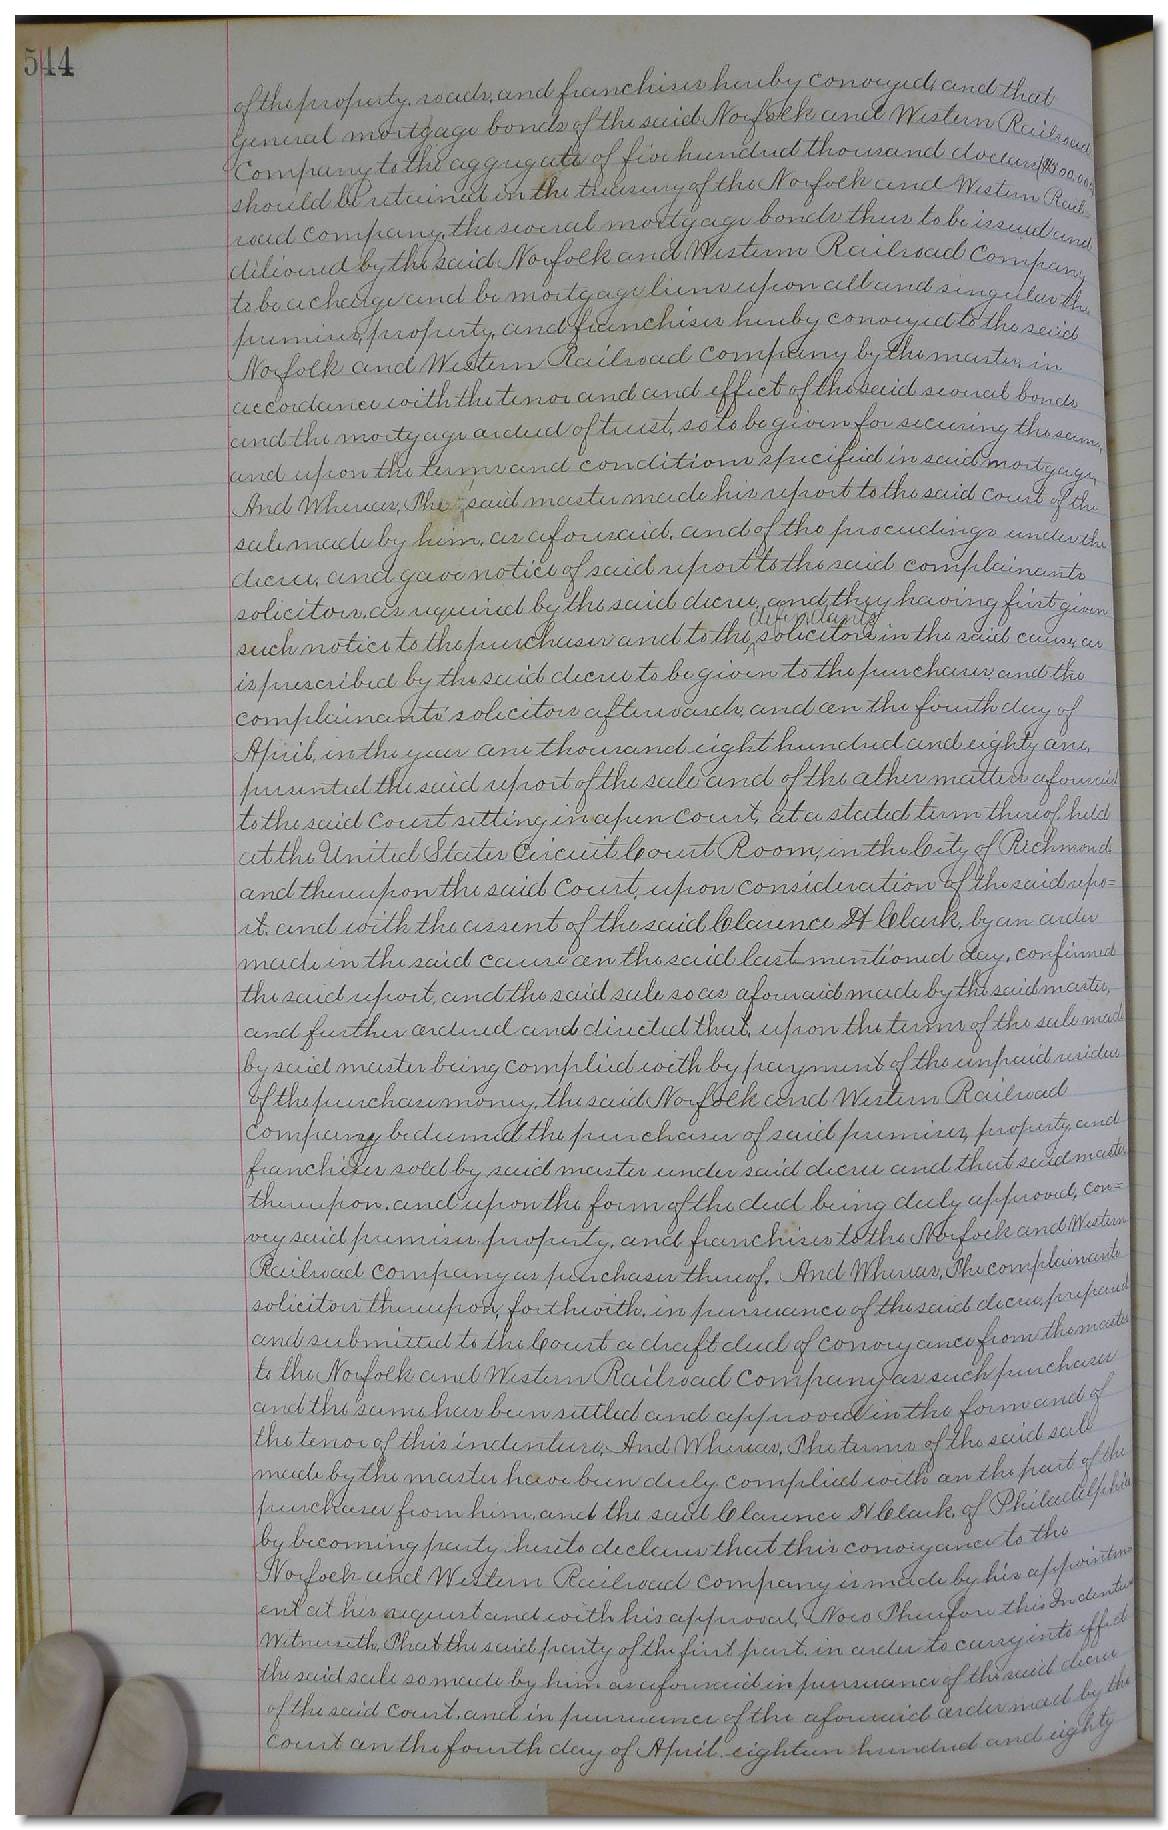 544
of the property, roads, and franchises hereby conveyed, and that
general mortgage bonds of the said Norfolk and Western Railroad
Company to the aggregate of five hundred thousand dollars
should be retained in the treasury of the Norfolk and Western Rail-
road company, the several mortgage bonds thus to be issued and
delivered by the said Norfolk and Western Railroad Company
to be a charge and be mortgage liens upon all and singular the
premises, property, and franchises hereby conveyed to the said
Norfolk and Western Railroad Company by the master, in
accordance with the tenor and and effect of the said several bonds
and the mortgage or deed of trust, so to be given for securing the same,
and upon the terms and conditions specified in said mortgage,
And Whereas, The said master made his report to the said court of the
sale made by him, as aforesaid, and of the proceedings under the
decree, and gave notice of said report to the said complainants
solicitors, as required by the said decree, and they having first given
such notice to the purchaser and to the defendants solicitors in the said cause, as
is prescribed by the said decree to be given to the purchaser, and the
complainants' solicitors afterwards, and on the fourth day of
April, in the year one thousand eight hundred and eighty one,
presented the said report of the sale and of the other matters aforesaid
to the said Court sitting in open court, at a stated term thereof, held
at the United States Circuit Court Room, in the City of Richmond
and thereupon the said Court, upon consideration of the said repo=
rt. and with the assent of the said Clarence H Clark, by an order
made in the said cause on the said last mentioned day, confirmed
the said report, and the said sale so as aforesaid made by the said master,
and further ordered and directed that, upon the terms of the sale made
by said master being complied with by payment of the unpaid residue
of the purchase money, the said Norfolk and Western Railroad
Company be deemed the purchaser of said premises, property and
franchises sold by said master under said decree and that said master
thereupon, and upon the form of the deed being duly approved, con=
vey said premises, property, and franchises to the Norfolk and Western
Railroad Company as purchaser thereof. And Whereas, The complainants
solicitors thereupon, forthwith, in pursuance of the said decree, prepared
and submitted to the Court a draft deed of conveyance from the master
to the Norfolk and Western Railroad Company as such purchaser
and the same has been settled and approved in the form and of
the tenor of this indenture; And Whereas, The terms of the said sale
made by the master have been duly complied with on the part of the
purchaser from him, and the said Clarence H Clark, of Philadelphia
by becoming party hereto declares that this conveyance to the
Norfolk and Western Railroad Company is made by his appointm
ent at his request and with his approval, Now Therefore this Indenture
Witnesseth, That the said party of the first part, in order to carry into effect
the said sale so made by him as aforesaid in pursuance of the said decree
of the said court, and in pursuance of the aforesaid order made by the
Court on the fourth day of April eighteen hundred and eighty